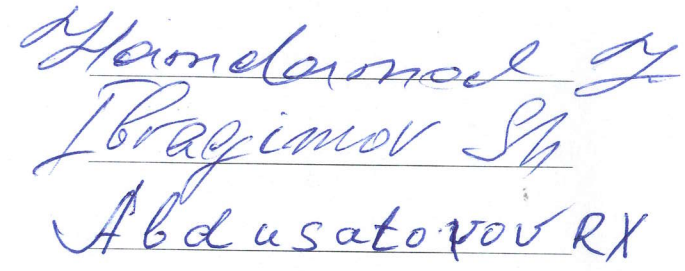 Hamdamod Z
Ibragimov Sh
Abdusatorov RX